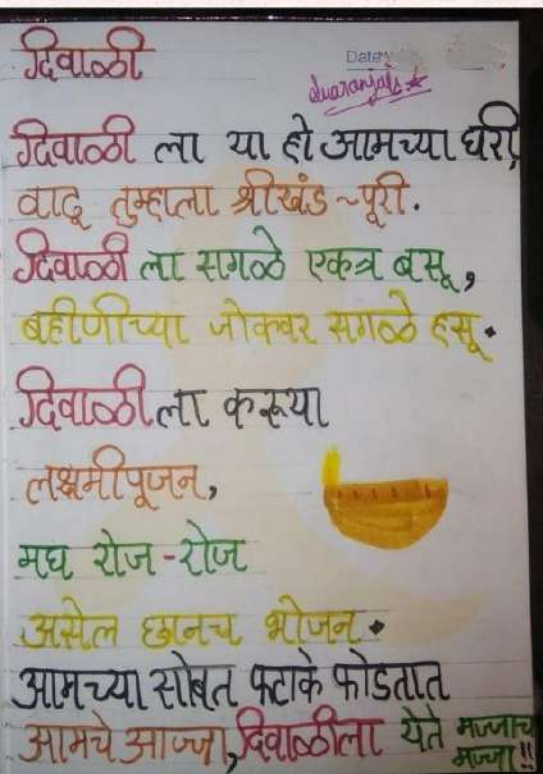 दिवाळी
Date:
दिवाळी ला या हो आमच्या घरी,
वाढू तुम्हाला श्रीखंड ~पूरी.
दिवाळी ला सगळे एकत्र बसू,
बहीणीच्या जोकवर सगळे हसू.
दिवाळी ला करूया
लक्ष्मीपूजन,
मघ रोज-रोज
असेल छानच भोजन.
आमच्या सोबत फटाके फोडतात
आमचे आज्जा, दिवाळीला येते मज्जाच
मज्जा!!